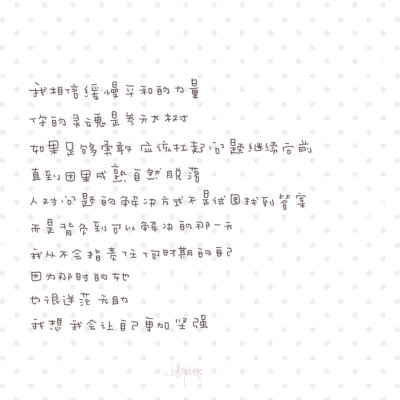 我相信缓慢平和的力量
你的灵魂是参天大树
如果足够勇敢 应该扛起问题继续向前
直到因果成熟自然脱落
人对问题的解决方式不是试图找到答案
而是背负到可以解决的那一天
我从不会指责任何时期的自己
因为那时的她
也很迷茫无助
我想我会让自己更加坚强